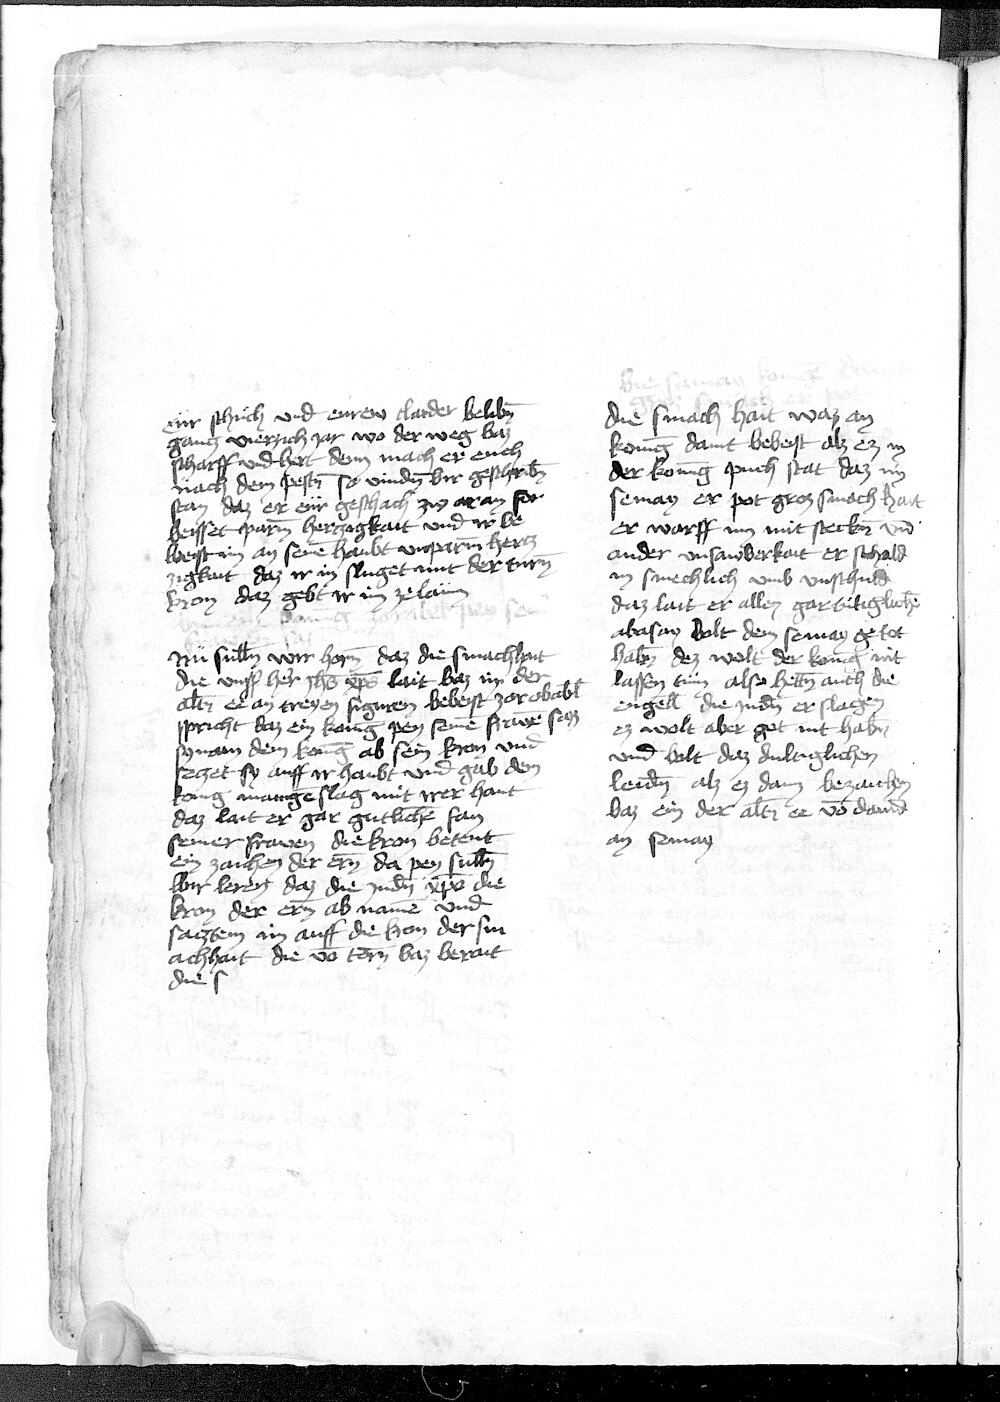 eür schuch und eurew claider belibn̄
gancz vierzich jar wo der weg baz
scharff und hert denn mach er euch
nach dem pestn̄ so vindn̄ bir geschribn̄
stan daz er eür geschach zw
beisset sparn̄ herczogkait und ir be
beist im an seinē haubt unparm̄ hercz
zigkait daz ir in sluget mit der turn̄
kron daz gebt ir im ze laün
Nü sullñ wir horn̄ daz die smachhait
die unss her jhs xp̄s lait baz im der
altn̄ ee an treyen figuren bebeist zorobabel
spricht daz ein koniḡ pey seinē frawē saz
sy nam dem koniḡ ab sein kron und
seczet sy auff ir haubt und gab dem
konig manigē slag mit irer hant
daz lait er gar gutlichē fan
seiner frawen die kron betent
ein zaichen der ern̄ da pey sulln̄
wir leren daz die judn̄ xp̄o die
kron der ern̄ ab namē und
saczten im auff die kron der sm
achhait die vō tōrn̄ baz berait
die s
die smach hait waz an
koniḡ damit bebeist alz ez in
der konig puch stat daz im
semay er pot groz smach hait
er warff im mit steckn̄ un̄
ander unsawberkait er schald
in smechlich umb unschuld
daz lait er allez gar tultiglichē
abasay bolt den semay getot
habn̄ dez wolt der koniḡ nit
lassen tun̄ also hettn̄ auch die
engell die judn̄ er slagen
ez wolt aber got nit habn̄
und bolt daz dultiglichen
leidn̄ alz ez dam bezaichen
baz ein der altn̄ ee vō david
an semay